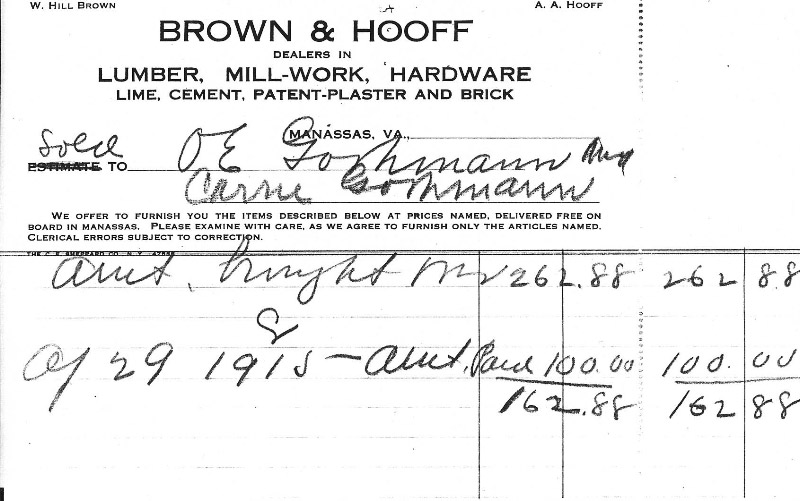 W. HILL BROWN A. A. HOOFF
BROWN & HOOFF
DEALERS IN
LUMBER, MILL-WORK, HARDWARE
LIME, CEMENT, PATENT-PLASTER AND BRICK
MANASSAS, VA.,
Sold
ESTIMATE TO O E Gohmann and
Carrie Gohmann
WE OFFER TO FURNISH YOU THE ITEMS DESCRIBED BELOW AT PRICES NAMED, DELIVERED FREE ON
BOARD IN MANASSAS. PLEASE EXAMINE WITH CARE, AS WE AGREE TO FURNISH ONLY THE ARTICLES NAMED.
CLERICAL ERRORS SUBJECT TO CORRECTION.
Amt. brought 262.88 262 88
Ap 29 1915 - Amt. Paid 100.00 100.00
162.88 162 88